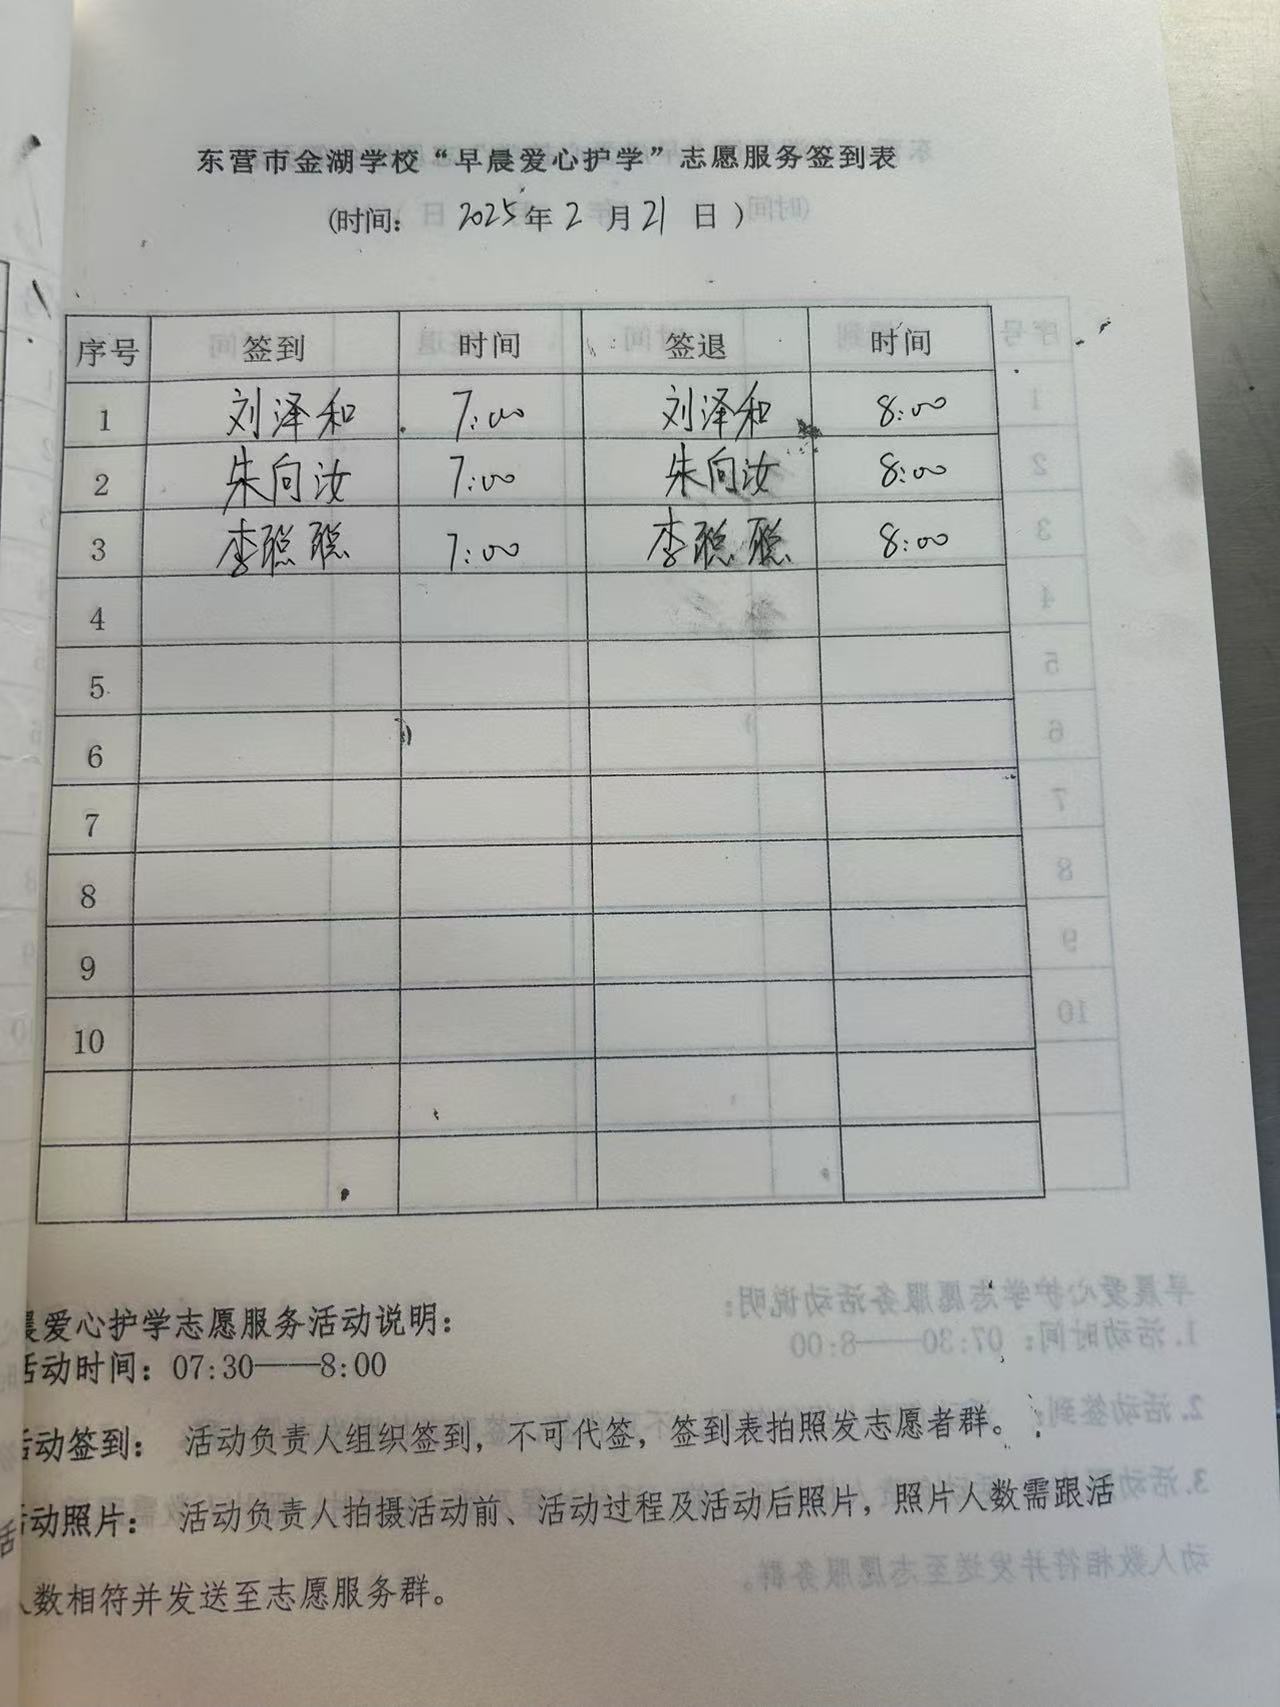 东营市金湖学校“早晨爱心护学”志愿服务签到表
(时间： 2025年2月21日)
序号 签到 时间 签退 时间
1 刘泽和 7:00 刘泽和 8:00
2 朱向汝 7:00 朱向汝 8:00
3 李聪聪 7:00 李聪聪 8:00
4
5
6
7
8
9
10
晨爱心护学志愿服务活动说明：
活动时间：07:30——8:00
活动签到： 活动负责人组织签到，不可代签，签到表拍照发志愿者群。
活动照片： 活动负责人拍摄活动前、活动过程及活动后照片，照片人数需跟活
人数相符并发送至志愿服务群。